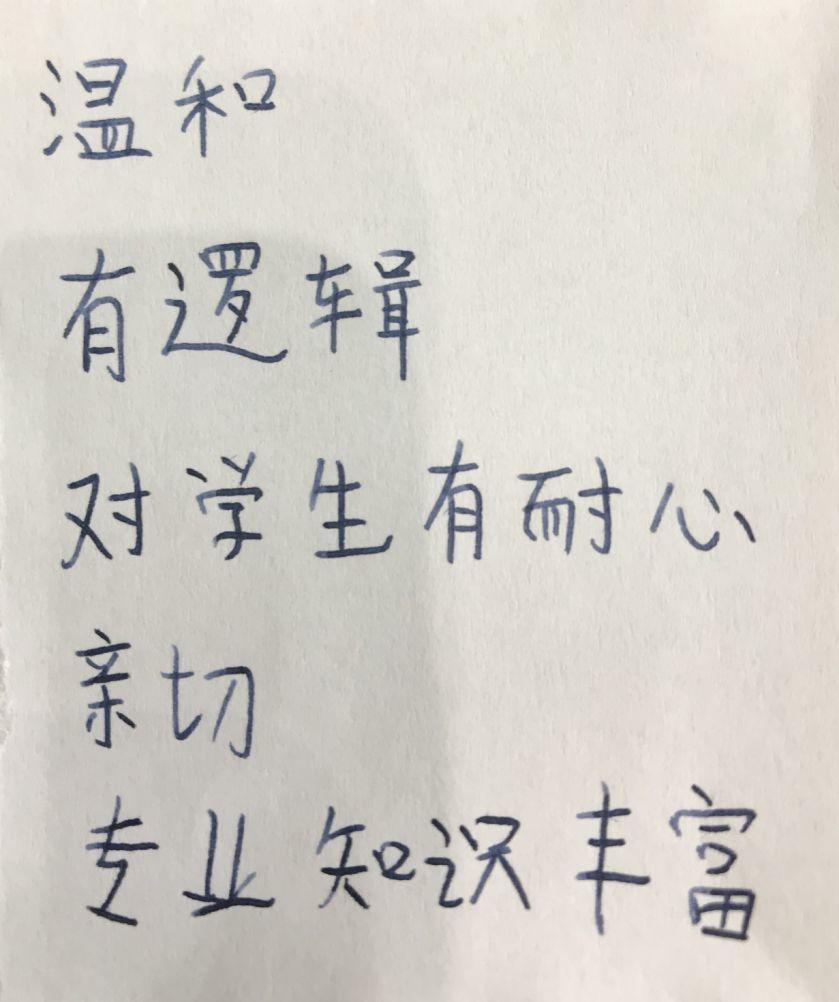 温和
有逻辑
对学生有耐心
亲切
专业知识丰富